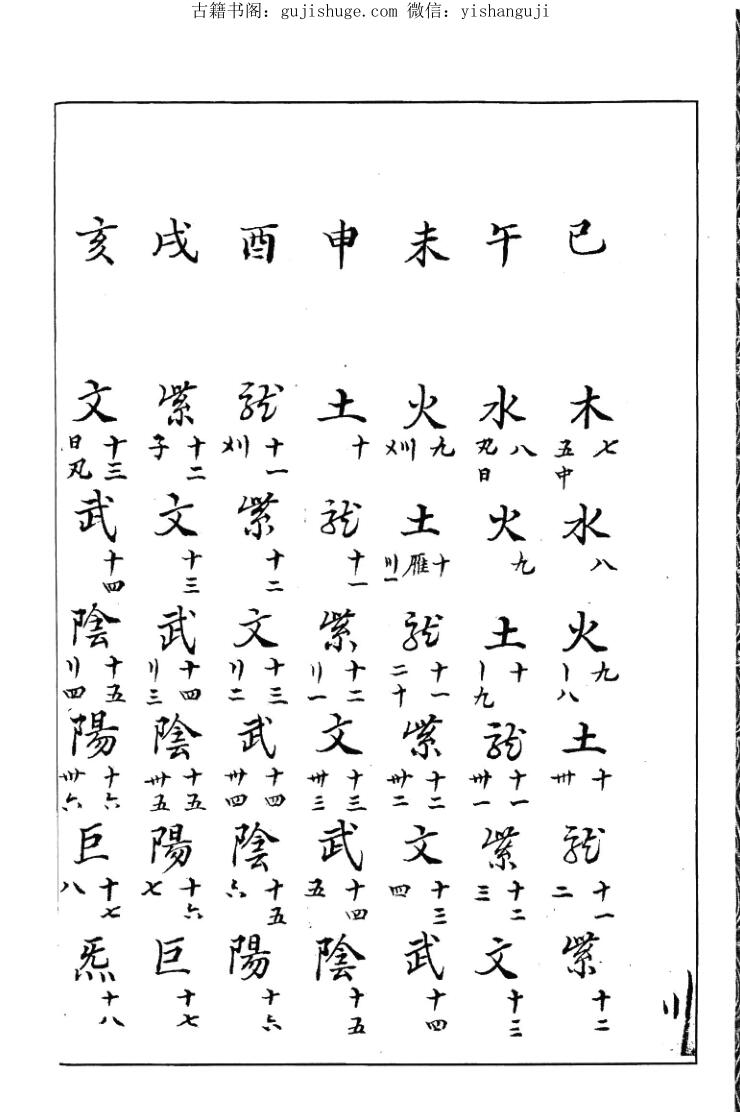 古籍书阁：gujishuge.com 微信：yishanguji
巳 木 七 五中 水 八 火 九 〡八 土 十 卅 龍 十一 二 紫 十二
午 水 八 丸日 火 九 土 十 〡九 龍 十一 卅一 紫 十二 三 文 十三
未 火 九 刈 土 十 雁 〢一 龍 十一 二十 紫 十二 卅二 文 十三 四 武 十四
申 土 十 龍 十一 紫 十二 〢一 文 十三 卅三 武 十四 五 陰 十五
酉 龍 十一 刈 紫 十二 文 十三 〢二 武 十四 卅四 陰 十五 六 陽 十六
戌 紫 十二 子 文 十三 武 十四 〢三 陰 十五 卅五 陽 十六 七 巨 十七
亥 文 十三 日丸 武 十四 陰 十五 〢四 陽 十六 卅六 巨 十七 八 炁 十八